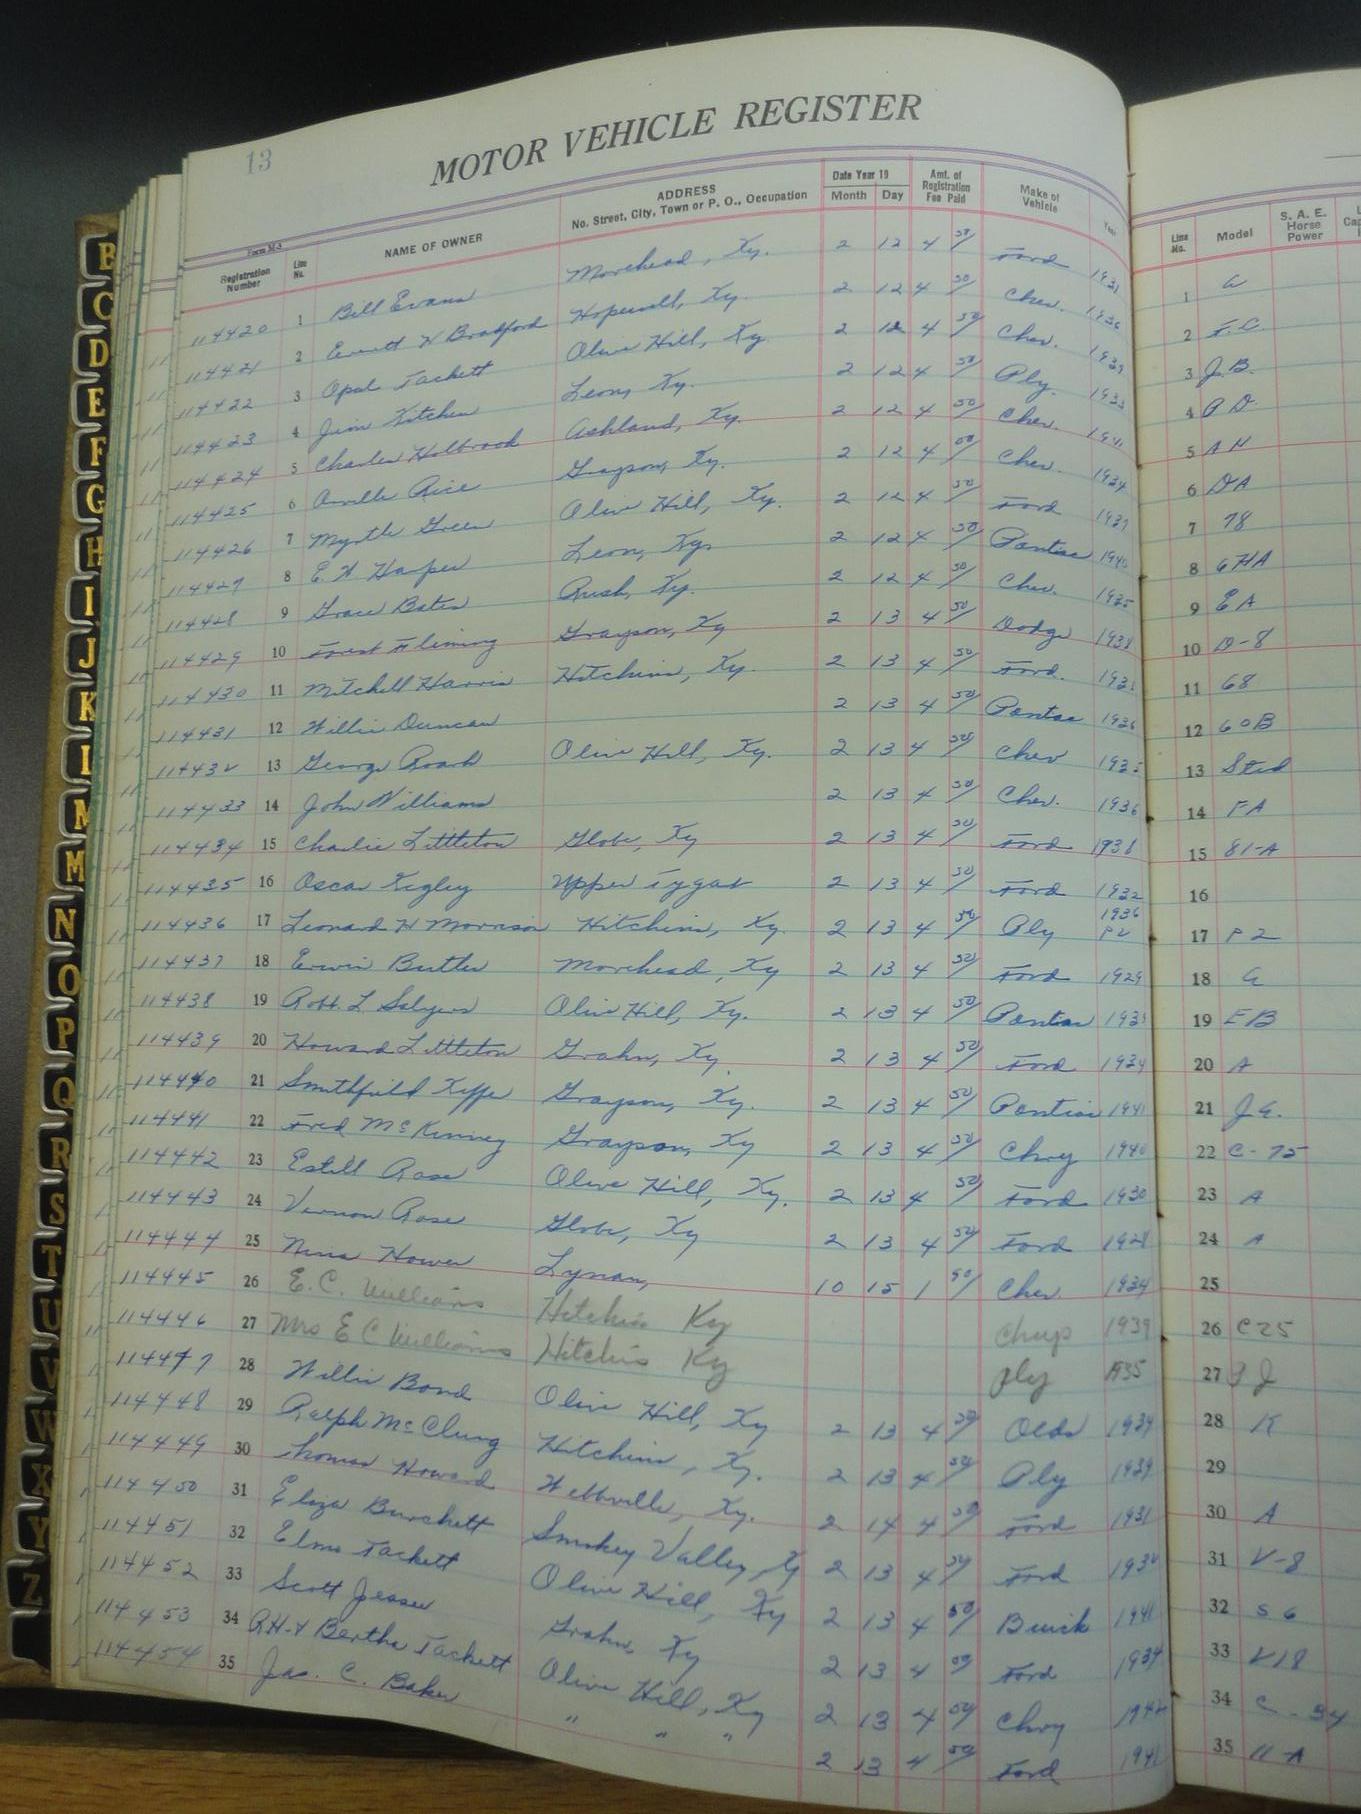 13
MOTOR VEHICLE REGISTER
Form M-4
Registration Number Line No. NAME OF OWNER ADDRESS No. Street, City, Town or P. O., Occupation Date Year 19 Month Day Amt. of Registration Fee Paid Make of Vehicle Year Line No. Model S. A. E. Horse Power
114420 1 Bill Evans Morehead, Ky. 2 12 4 50 Ford 1931 1
114421 2 Everett W Bradford Hopewell, Ky. 2 12 4 50 Chev. 1936 2 F.C.
114422 3 Opal Tackett Olive Hill, Ky. 2 12 4 50 Chev. 1939 3 J.B.
114423 4 Jim Kitchen Leon, Ky. 2 12 4 50 Ply. 1933 4 P D.
114424 5 Charles Holbrook Ashland, Ky. 2 12 4 50 Chev. 1941 5 A H
114425 6 Orville Rice Grayson, Ky. 2 12 4 50 Chev. 1934 6 DA
114426 7 Myrtle Green Olive Hill, Ky. 2 12 4 50 Ford 1937 7 78
114427 8 E. W Harper Leon, Ky. 2 12 4 50 Pontiac 1940 8 6HA
114428 9 Grace Bates Rush, Ky. 2 12 4 50 Chev. 1935 9 EA
114429 10 Forest Fleming Grayson, Ky 2 13 4 50 Dodge 1938 10 D-8
114430 11 Mitchell Harris Hitchins, Ky. 2 13 4 50 Ford. 11 68
114431 12 Willie Duncan 2 13 4 50 Pontiac 1936 12 60B
114432 13 George Roark Olive Hill, Ky. 2 13 4 50 Chev 1935 13 Std
114433 14 John Williams 2 13 4 50 Chev. 1936 14 FA
114434 15 Charlie Littleton Globe, Ky 2 13 4 50 Ford 1938 15 81-A
114435 16 Oscar Kegley Upper Tygart 2 13 4 50 Ford 1932 16
114436 17 Leonard H Morrison Hitchins, Ky. 2 13 4 50 Ply 1936 P2 17 P 2
114437 18 Erwin Butler Morehead, Ky 2 13 4 50 Ford 1929 18
114438 19 Robt. L Salyers Olive Hill, Ky. 2 13 4 50 Pontiac 19 EB
114439 20 Howard Littleton Grahn, Ky. 2 13 4 50 Ford 1929 20 A
114440 21 Smithfield Keffer Grayson, Ky. 2 13 4 50 Pontiac 1941 21 J.A.
114441 22 Fred McKinney Grayson, Ky 2 13 4 50 Chry 1940 22 C-75
114442 23 Estill Rose Olive Hill, Ky. 2 13 4 50 Ford 1930 23 A
114443 24 Vernon Rose Globe, Ky 2 13 4 50 Ford 1928 24 A
114444 25 Nina Hower Lyman, 10 15 1 90 Chev 1934 25
114445 26 E. C. Williams Hitchins Ky Chrys 1939 26 C25
114446 27 Mrs E C Williams Hitchins Ky Ply 1935 27 P J
114447 28 Willie Bond Olive Hill, Ky 2 13 4 50 Olds 1934 28 K
114448 29 Ralph McClung Hitchins, Ky. 2 13 4 50 Ply 1939 29
114449 30 Thomas Howard Webbville, Ky. 2 14 4 50 Ford 1931 30 A
114450 31 Eliza Burchett Smokey Valley, Ky 2 13 4 50 Ford 31 V-8
114451 32 Elmo Tackett Olive Hill, Ky 2 13 4 50 Buick 1941 32 S 6
114452 33 Scott Jessee Grahn, Ky 2 13 4 50 Ford 1934 33
114453 34 R.H. & Bertha Tackett Olive Hill, Ky 2 13 4 50 Chry 1942 34 C-34
114454 35 Jas. C. Baker " " " 2 13 4 50 Ford 1941 35 11-A
B
C
D
E
F
G
H
I
J
K
L
M
M
N
O
P
Q
R
S
T
U
V
W
X
Y
Z